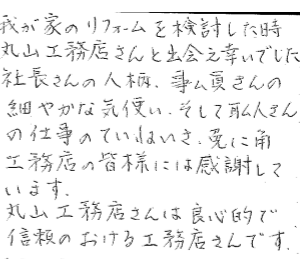 我が家のリフォームを検討した時
丸山工務店さんと出会え幸いでした
社長さんの人柄、事ム員さんの
細やかな気使い、そして職人さん
の仕事のていねいさ、兎に角
工務店の皆様には感謝して
います。
丸山工務店さんは良心的で
信頼のおける工務店さんです。